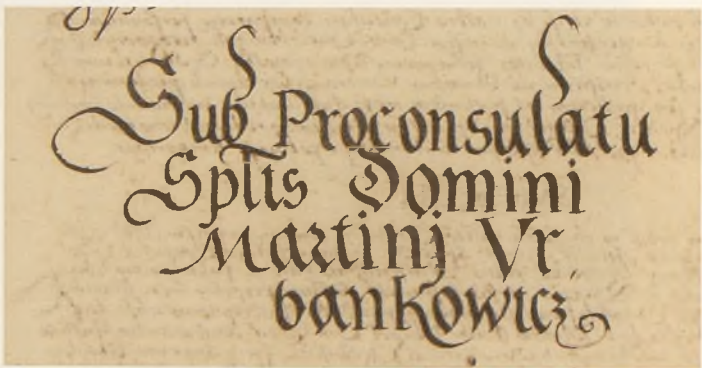 Sub Proconsulatu
Spltis Domini
Martinj Vr
bankowicz